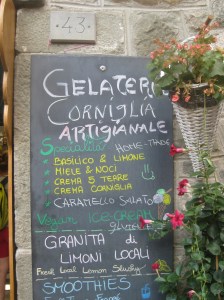 43
GELATERI
CORNIGLIA
ARTIGIANALE
Specialità HOME-MADE
BASILICO & LIMONE
MIELE & NOCI
CREMA 5 TERRE
CREMA CORNIGLIA
CARAMELLO SALATO
Vegan ICE-CREAM
GRANITA di
LIMONI LOCALI
Fresh Local Lemon Slushy
SMOOTHIES